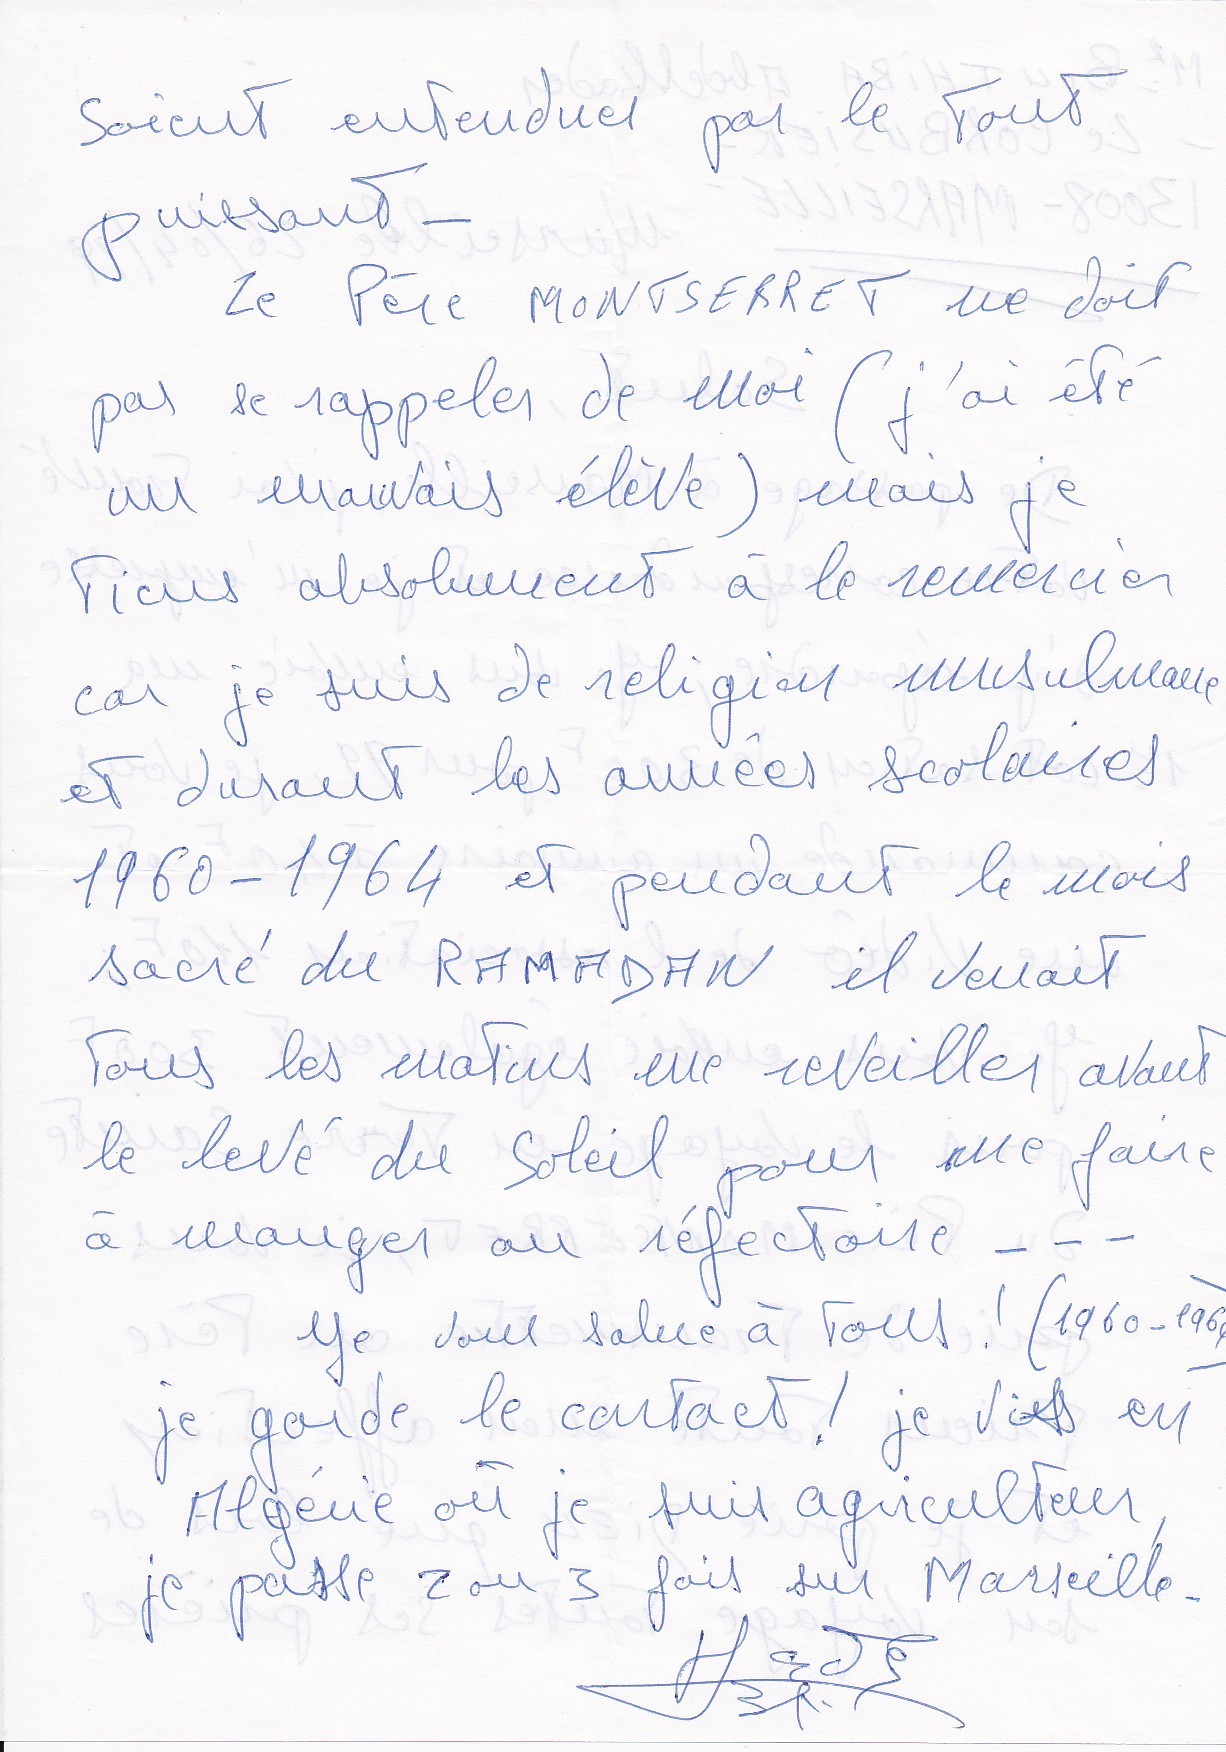 soient entendues par le Tout
puissant -
Le Père MONTSERRET ne doit
pas se rappeler de moi (j'ai été
un mauvais élève) mais je
Tiens absolument à le remercier
car je suis de religion musulmane
et durant les années scolaires
1960-1964 et pendant le mois
sacré du RAMADAN il venait
Tous les matins me reveiller avant
le levé du Soleil pour me faire
à manger au réfectoire ---
Je vous salue à Tous! (1960-1964
je garde le contact! je vis en
Algérie où je suis agriculteur,
je passe 2 ou 3 fois sur Marseille.